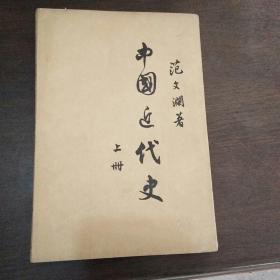 范文澜著
中國近代史
上冊